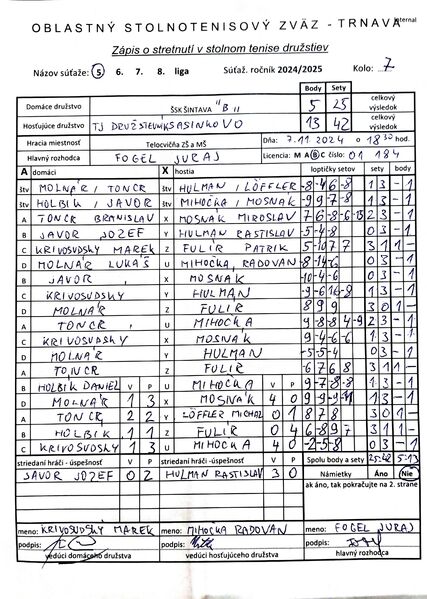 Internal
OBLASTNÝ STOLNOTENISOVÝ ZVÄZ - TRNAVA
Zápis o stretnutí v stolnom tenise družstiev
Názov súťaže: 5 6. 7. 8. liga Súťaž. ročník 2024/2025 Kolo: 7
Body Sety
Domáce družstvo ŠSK ŠINTAVA "B" 5 25 celkový výsledok
Hosťujúce družstvo TJ DRUŽSTEVNÍK SASINKOVO 13 42 celkový výsledok
Hracia miestnosť Telocvičňa ZŠ a MŠ Dňa: 7.11 2024 o 18 30 hod.
Hlavný rozhodca FOGEL JURAJ Licencia: M A B C číslo: 01 184
A domáci X hostia loptičky setov sety body
štv MOLNÁR / TONCR štv HULMAN / LÖFFLER -8-4 6-8 1 3 - 1
štv HOLBIK / JAVOR štv MIHOČKA / MOSNAK -9-9 7-8 1 3 - 1
A TONCR BRANISLAV X MOSNAK MIROSLAV 2 3 - 1
B JAVOR JOZEF Y HULMAN RASTISLAV -5-4-8 0 3 - 1
C KRIVOSUDSKY MAREK Z FULIR PATRIK 3 1 1 -
D MOLNÁR LUKÁŠ U MIHOČKA, RADOVAN 0 3 - 1
B JAVOR X MOSNAK -10-4-6 0 3 - 1
C KRIVOSUDSKY Y HULMAN 1 3 - 1
D MOLNÁR Z FULIR 8 9 9 3 0 1 -
A TONCR U MIHOČKA 2 3 - 1
C KRIVOSUDSKY X MOSNAK -9-4-6-6 1 3 - 1
D MOLNÁR Y HULMAN -5-5-4 0 3 - 1
A TONCR Z FULIR 6 7 6 8 3 1 1 -
B HOLBIK DANIEL V P U MIHOČKA V P -9-7-8-8 1 3 - 1
D MOLNÁR 1 3 X MOSNAK 4 0 1 3 - 1
A TONCR 2 2 Y LÖFFLER MICHAL 0 1 8 7 8 3 0 1 -
B HOLBIK 1 1 Z FULIR 0 4 1 3 - 1
C KRIVOSUDSKY 1 3 U MIHOČKA 4 0 -2-5-8 0 3 - 1
striedaní hráči - úspešnosť V P striedaní hráči - úspešnosť V P Spolu body a sety 25:42 5:13
JAVOR JOZEF 0 2 HULMAN RASTISLAV 3 0 Námietky Áno Nie
ak áno, tak pokračujte na 2. strane
meno: KRIVOSUDSKÝ MAREK meno: MIHOČKA RADOVAN meno: FOGEL JURAJ
podpis: podpis: podpis:
vedúci domáceho družstva vedúci hosťujúceho družstva hlavný rozhodca